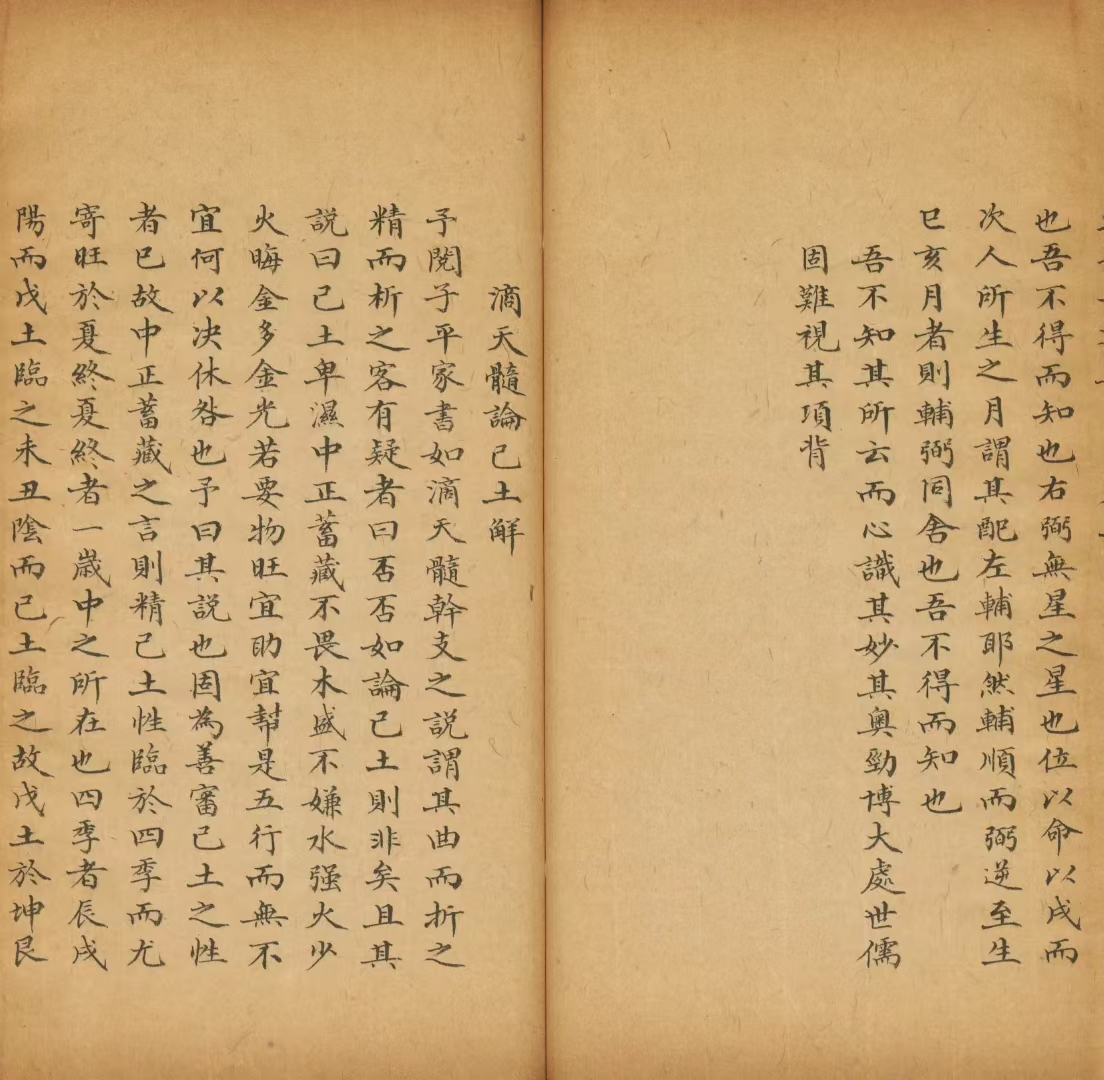 也吾不得而知也右弼無星之星也位以命以戌而
次人所生之月謂其配左輔耶然輔順而弼逆至生
巳亥月者則輔弼同舍也吾不得而知也
吾不知其所云而心識其妙其奧勁博大處世儒
固難視其項背
滴天髓論己土解
予閱子平家書如滴天髓幹支之説謂其曲而折之
精而析之客有疑者曰否否如論己土則非矣且其
説曰己土卑濕中正蓄藏不畏木盛不嫌水强火少
火晦金多金光若要物旺宜助宜幇是五行而無不
宜何以决休咎也予曰其説也固為善審己土之性
者巳故中正蓄藏之言則精己土性臨於四季而尤
寄旺於夏終夏終者一歲中之所在也四季者辰戌
陽而戊土臨之未丑陰而己土臨之故戊土於坤艮